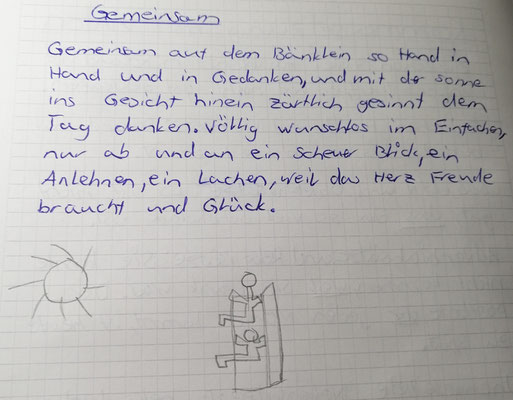 Gemeinsam
Gemeinsam auf dem Bänklein so Hand in
Hand und in Gedanken, und mit der sonne
ins Gesicht hinein zärtlich gesinnt dem
Tag danken. Völlig wunschlos im Einfachen,
nur ab und an ein scheuer Blick, ein
Anlehnen, ein Lachen, weil das Herz Freude
braucht und Glück.